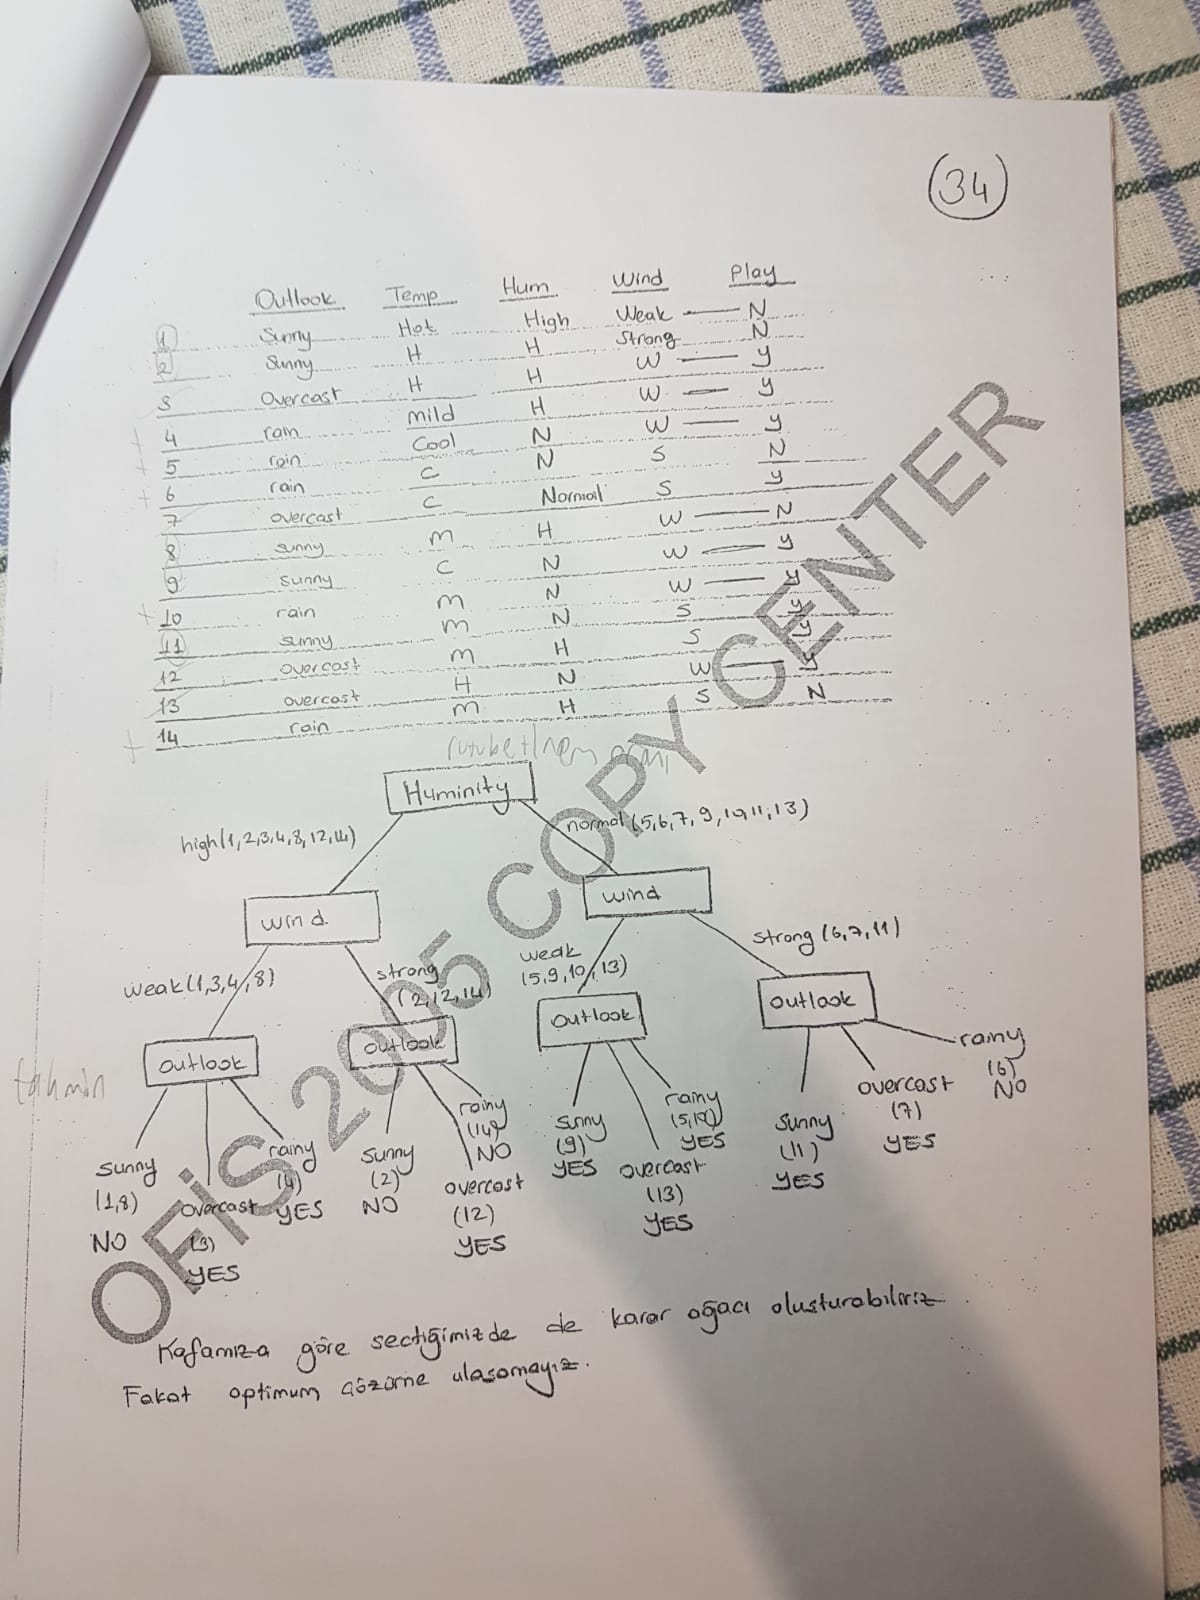 34
Outlook Temp Hum Wind Play
1 Sunny Hot High Weak — N
2 Sunny H H Strong N
3 Overcast H H W — y
4 rain mild H W — y
5 rain Cool N W — y
6 rain C N S N
7 overcast C Normal S y
8 sunny m H W — N
9 sunny C N W — y
10 rain m N W — y
11 sunny m N S y
12 overcast m H S y
13 overcast H N W — y
14 rain m H S N
Huminity
high(1,2,3,4,8,12,14) normal (5,6,7,9,10,11,13)
wind wind
weak(1,3,4,8) strong (2,12,14) weak (5,9,10,13) strong (6,7,11)
outlook outlook outlook outlook
tahmin
sunny (1,8) NO
overcast (3) YES
rainy (4) YES
sunny (2) NO
overcast (12) YES
rainy (14) NO
sunny (9) YES
overcast (13) YES
rainy (5,10) YES
sunny (11) YES
overcast (7) YES
rainy (6) NO
Kafamıza göre sectiğimizde de karar ağacı oluşturabiliriz
Fakat optimum çözüme ulaşamayız.
OFİS 2005 COPY CENTER